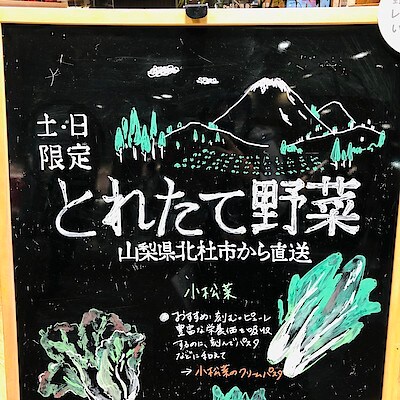 土・日
限定
とれたて野菜
山梨県北杜市から直送
小松菜
●おすすめ：刻む・ピューレ
豊富な栄養価を吸収
するのに、刻んでパスタ
などに和えて
→小松菜のクリームパスタ